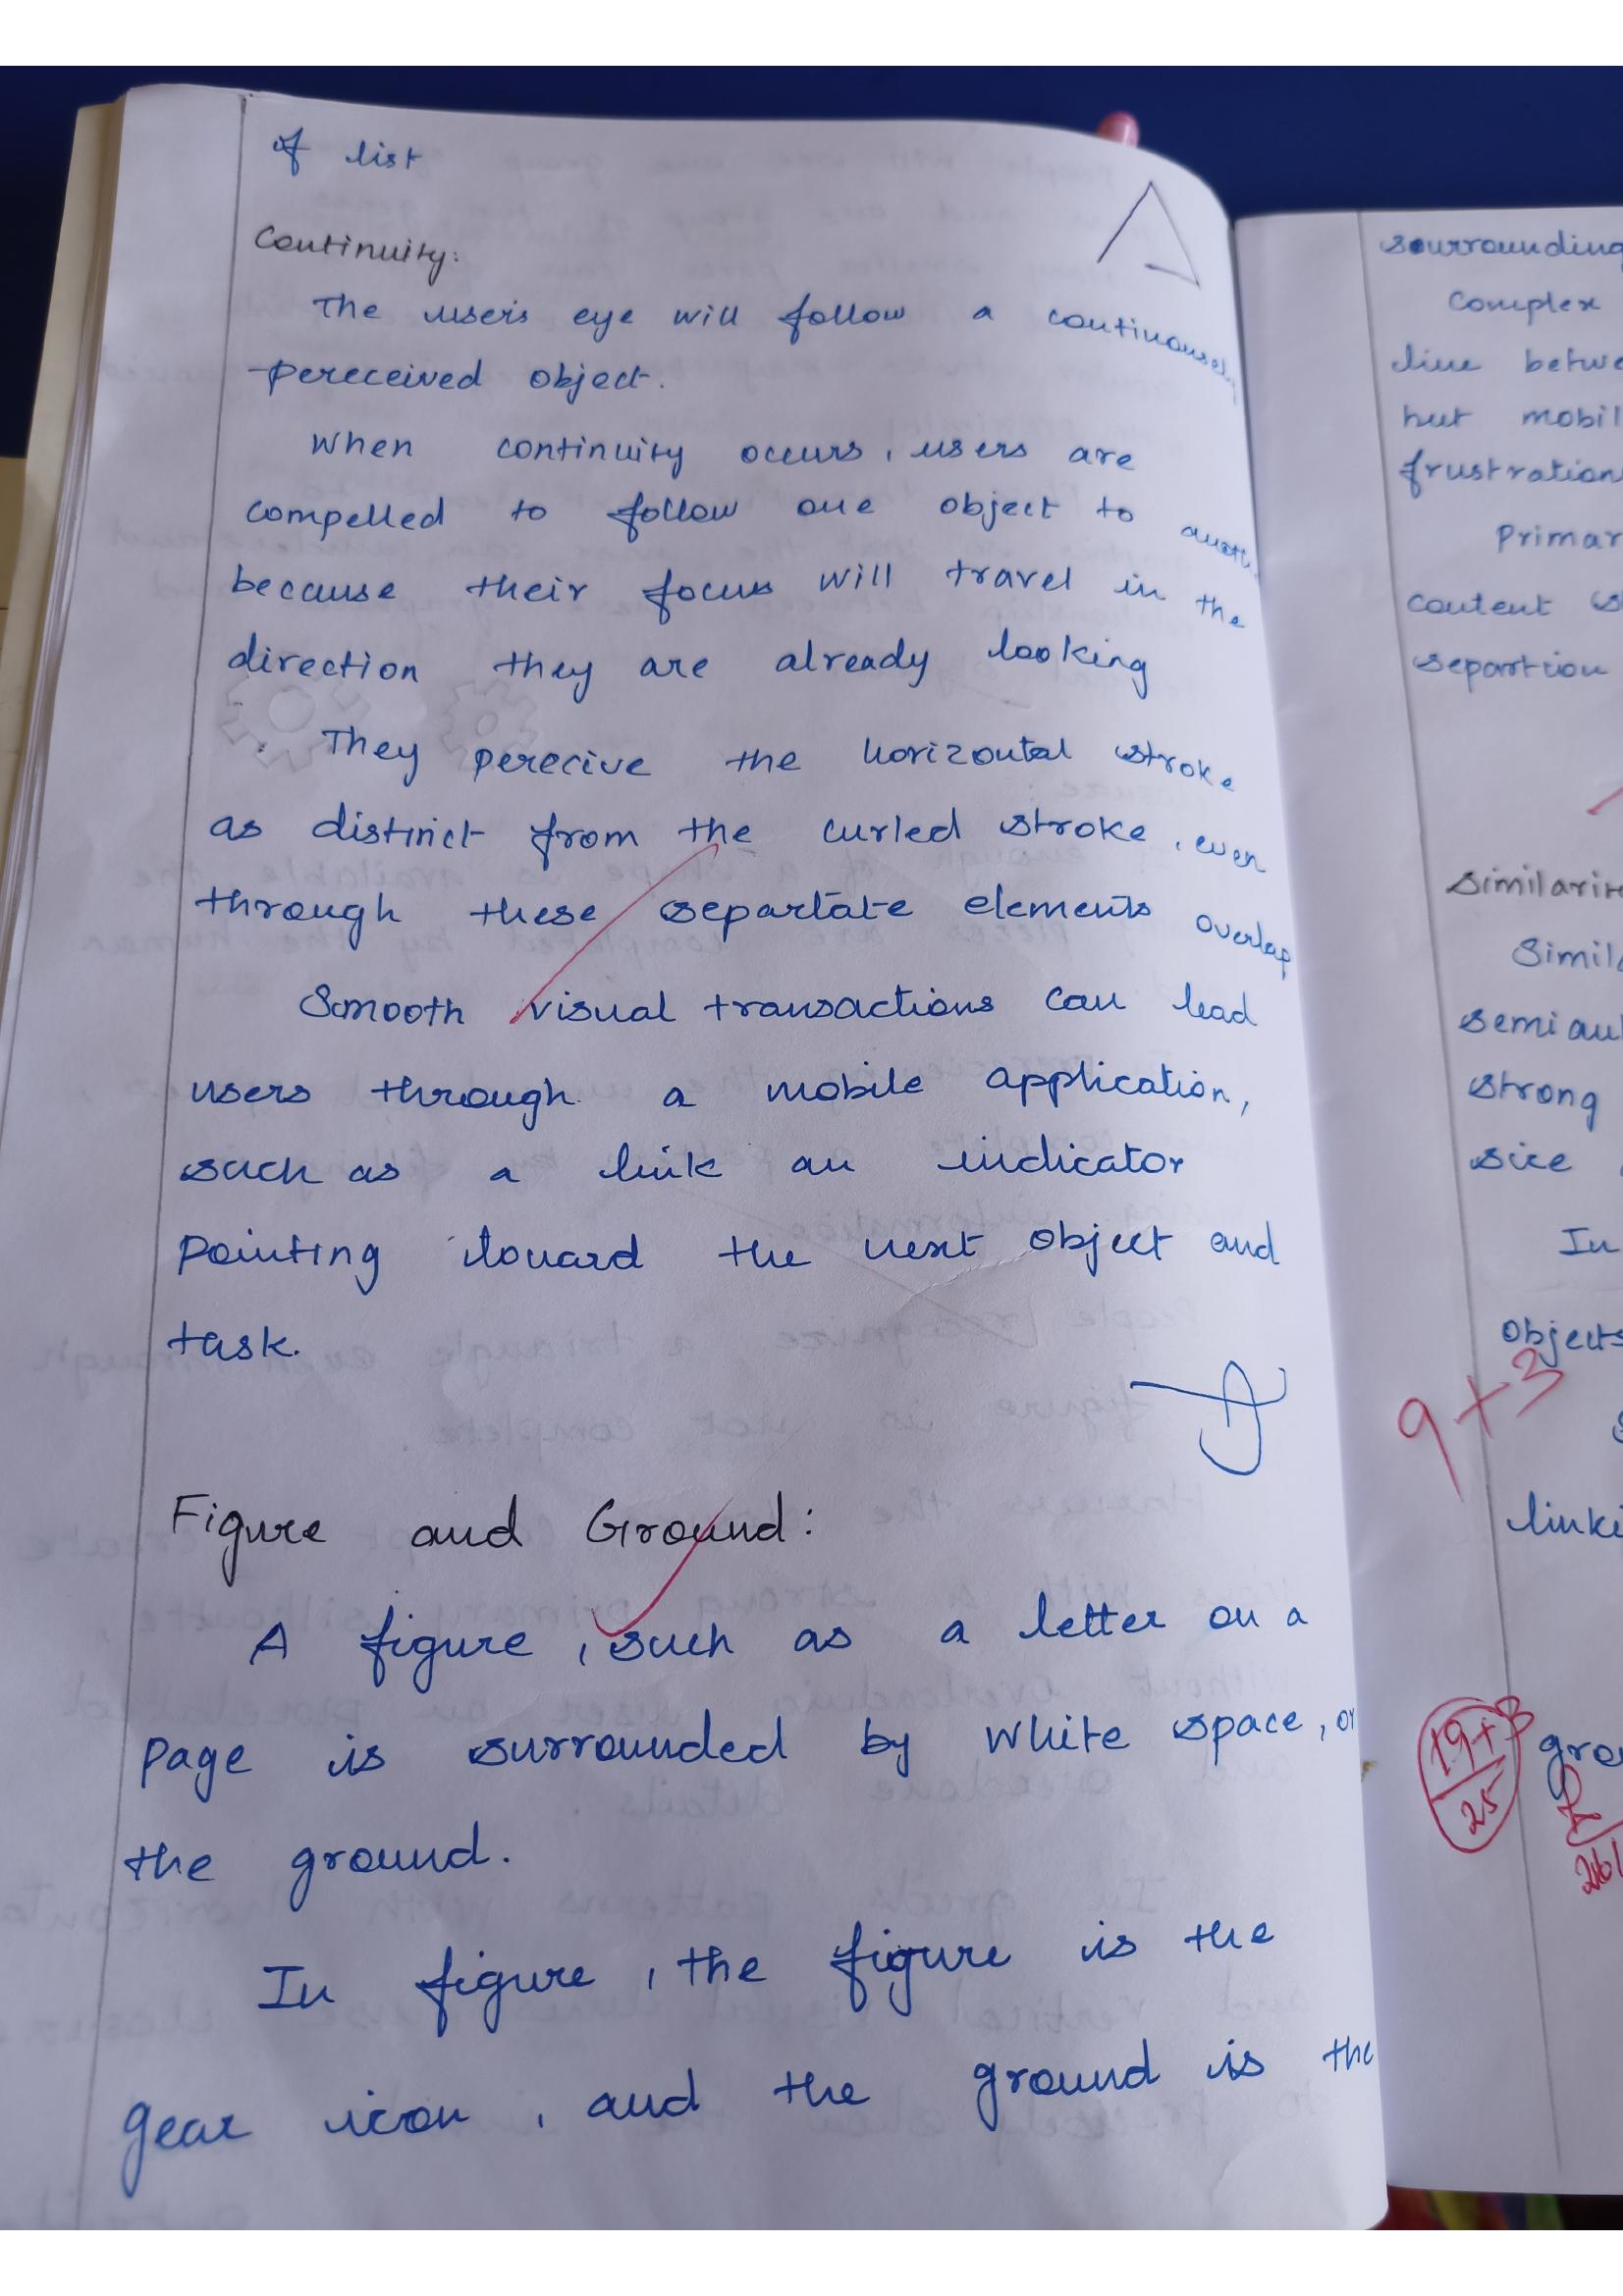 of list
Continuity:
The users eye will follow a continously
pereceived object.
When continuity occurs, users are
compelled to follow one object to
because their focus will travel in the
direction they are already looking
They perecive the horizontal stroke
as distinct from the curled stroke, even
through these separtate elements overlap
Smooth visual transactions can lead
users through a mobile application,
such as a link an indicator
pointing toward the next object and
task.
Figure and Ground:
A figure, such as a letter on a
page is surrounded by white space, or
the ground.
In figure, the figure is the
gear icon, and the ground is the
sourrounding
Complex
line betwe
but mobil
frustration
Primar
content s
separtion
Similarit
Simil
semi au
strong
size
In
Objects
9+3
linki
19+3
25
grou